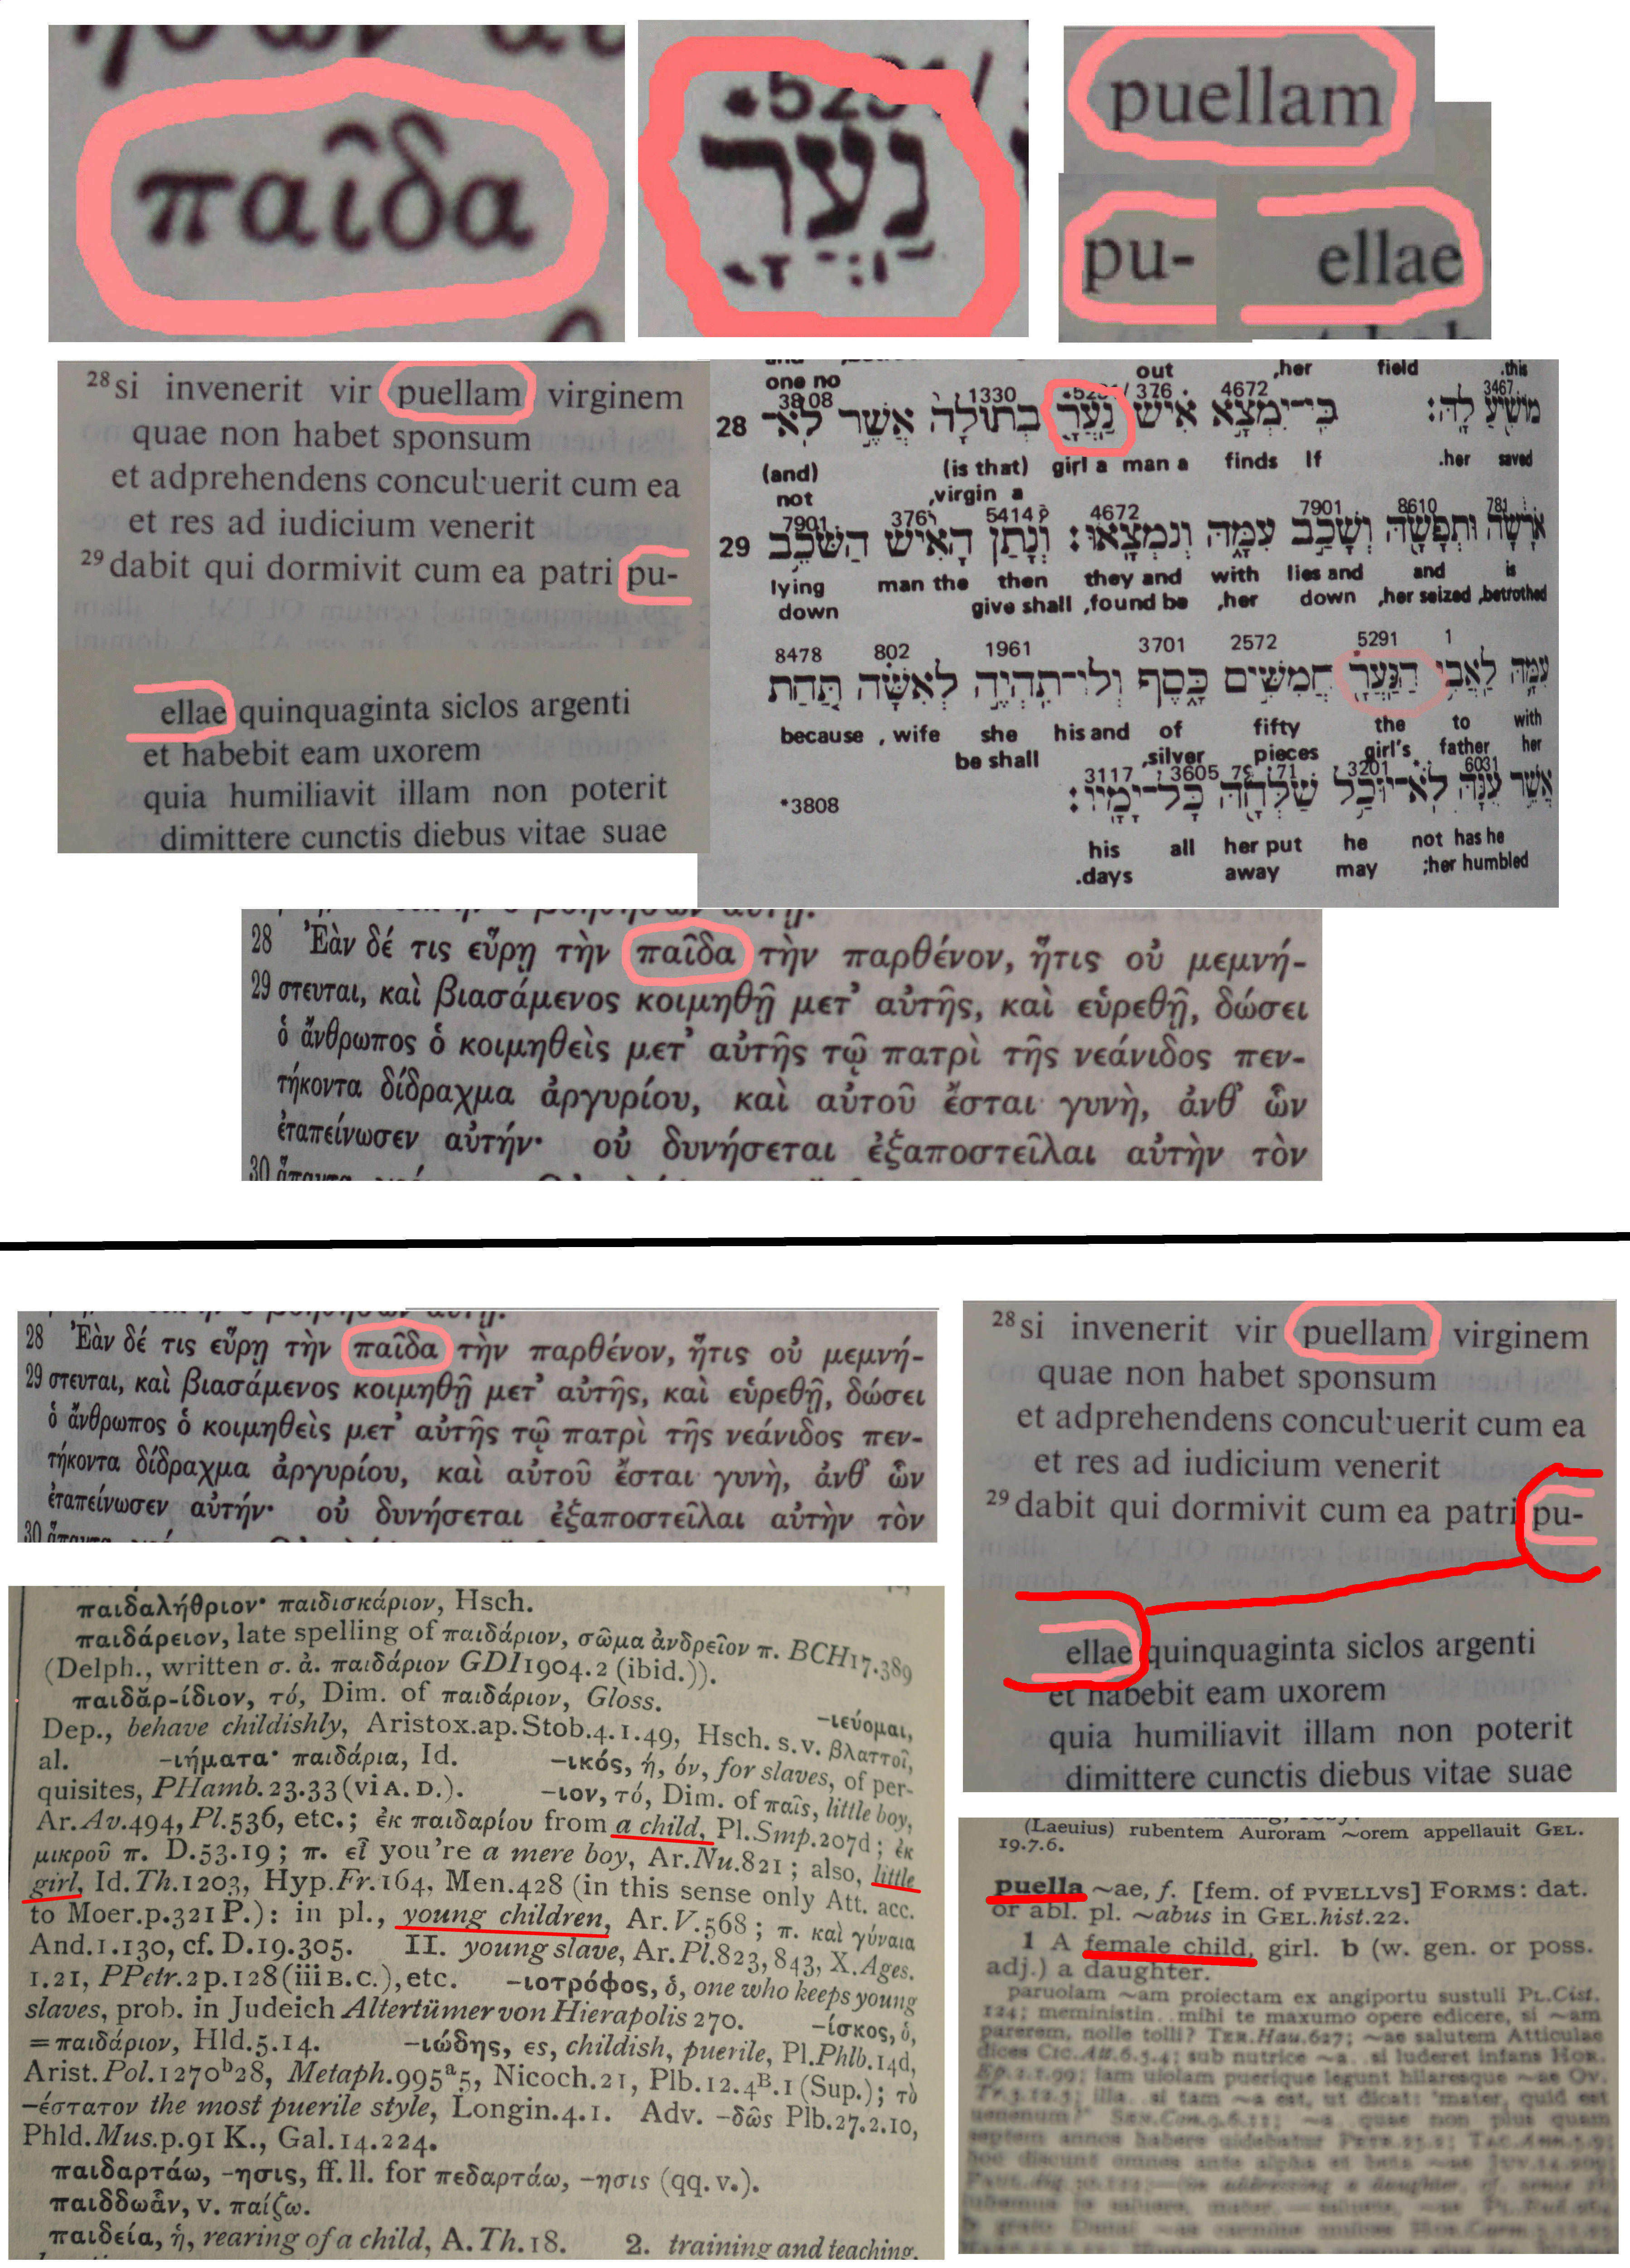 παῖδα
נַעֲרָ
puellam
pu-
ellae
28 si invenerit vir puellam virginem
quae non habet sponsum
et adprehendens concubuerit cum ea
et res ad iudicium venerit
29 dabit qui dormivit cum ea patri pu-
ellae quinquaginta siclos argenti
et habebit eam uxorem
quia humiliavit illam non poterit
dimittere cunctis diebus vitae suae
out ,her field .this
one no
3808 1330 376 4672 3467
28 כִּי־יִמְצָא אִישׁ נַעֲרָ בְתוּלָה אֲשֶׁר לֹא־ מוֹשִׁיעַ לָהּ׃
(and) (is that) girl a man a finds If .her saved
not ,virgin a
7901 376 5414 4672 7901 8610 781
29 אֹרָשָׂה וּתְפָשָׂהּ וְשָׁכַב עִמָּהּ וְנִמְצָאוּ׃ וְנָתַן הָאִישׁ הַשֹּׁכֵב
lying man the then they and with lies and and is
down give shall ,found be ,her down ,her seized ,betrothed
8478 802 1961 3701 2572 5291 1
עִמָּהּ לַאֲבִי הַנַּעֲרָ חֲמִשִּׁים כָּסֶף וְלוֹ־תִהְיֶה לְאִשָּׁה תַּחַת
because , wife she his and of fifty the to with
be shall ,silver pieces girl's father her
3117 3605 7971 3201 6031
*3808 אֲשֶׁר עִנָּהּ לֹא־יוּכַל שַׁלְּחָהּ כָּל־יָמָיו׃
his all her put he not has he
.days away may ;her humbled
28 Ἐὰν δέ τις εὕρῃ τὴν παῖδα τὴν παρθένον, ἥτις οὐ μεμνή-
29 στευται, καὶ βιασάμενος κοιμηθῇ μετ᾽ αὐτῆς, καὶ εὑρεθῇ, δώσει
ὁ ἄνθρωπος ὁ κοιμηθεὶς μετ᾽ αὐτῆς τῷ πατρὶ τῆς νεάνιδος πεν-
τήκοντα δίδραχμα ἀργυρίου, καὶ αὐτοῦ ἔσται γυνὴ, ἀνθ᾽ ὧν
ἐταπείνωσεν αὐτήν· οὐ δυνήσεται ἐξαποστεῖλαι αὐτὴν τὸν
30
28 Ἐὰν δέ τις εὕρῃ τὴν παῖδα τὴν παρθένον, ἥτις οὐ μεμνή-
29 στευται, καὶ βιασάμενος κοιμηθῇ μετ᾽ αὐτῆς, καὶ εὑρεθῇ, δώσει
ὁ ἄνθρωπος ὁ κοιμηθεὶς μετ᾽ αὐτῆς τῷ πατρὶ τῆς νεάνιδος πεν-
τήκοντα δίδραχμα ἀργυρίου, καὶ αὐτοῦ ἔσται γυνὴ, ἀνθ᾽ ὧν
ἐταπείνωσεν αὐτήν· οὐ δυνήσεται ἐξαποστεῖλαι αὐτὴν τὸν
30
28 si invenerit vir puellam virginem
quae non habet sponsum
et adprehendens concubuerit cum ea
et res ad iudicium venerit
29 dabit qui dormivit cum ea patri pu-
ellae quinquaginta siclos argenti
et habebit eam uxorem
quia humiliavit illam non poterit
dimittere cunctis diebus vitae suae
παιδαλήθριον· παιδισκάριον, Hsch.
παιδάρειον, late spelling of παιδάριον, σῶμα ἀνδρεῖον π. BCH17.389
(Delph., written σ. ἀ. παιδάριον GDI1904.2 (ibid.)).
παιδᾰρ-ίδιον, τό, Dim. of παιδάριον, Gloss. -ιεύομαι,
Dep., behave childishly, Aristox.ap.Stob.4.1.49, Hsch. s.v. βλαττοῖ,
al. -ιήματα· παιδάρια, Id. -ικός, ή, όν, for slaves, of per-
quisites, PHamb.23.33 (vi A. D.). -ιον, τό, Dim. of παῖς, little boy,
Ar.Av.494, Pl.536, etc.; ἐκ παιδαρίου from a child, Pl.Smp.207d; ἐκ
μικροῦ π. D.53.19; π. εἶ you're a mere boy, Ar.Nu.821; also, little
girl, Id.Th.1203, Hyp.Fr.164, Men.428 (in this sense only Att. acc.
to Moer.p.321 P.): in pl., young children, Ar.V.568; π. καὶ γύναια
And.1.130, cf. D.19.305. II. young slave, Ar.Pl.823, 843, X.Ages.
1.21, PPetr.2 p.128 (iii B.C.), etc. -ιοτρόφος, ὁ, one who keeps young
slaves, prob. in Judeich Altertümer von Hierapolis 270. -ίσκος, ὁ,
= παιδάριον, Hld.5.14. -ιώδης, ες, childish, puerile, Pl.Phlb.14d,
Arist.Pol.1270b28, Metaph.995a5, Nicoch.21, Plb.12.4B.1 (Sup.); τὸ
-έστατον the most puerile style, Longin.4.1. Adv. -δῶς Plb.27.2.10,
Phld.Mus.p.91 K., Gal.14.224.
παιδαρτάω, -ησις, ff. ll. for πεδαρτάω, -ησις (qq. v.).
παιδδωἄν, v. παίζω.
παιδεία, ἡ, rearing of a child, A.Th.18. 2. training and teaching,
(Laeuius) rubentem Auroram ~orem appellauit GEL.
19.7.6.
puella ~ae, f. [fem. of PVELLVS] FORMS: dat.
or abl. pl. ~abus in GEL.hist.22.
1 A female child, girl. b (w. gen. or poss.
adj.) a daughter.
paruolam ~am proiectam ex angiportu sustuli PL.Cist.
124; meministin.. mihi te maxumo opere edicere, si ~am
parerem, nolle tolli? TER.Hau.627; ~ae salutem Atticulae
dices CIC.Att.6.5.4; sub nutrice ~a.. si luderet infans HOR.